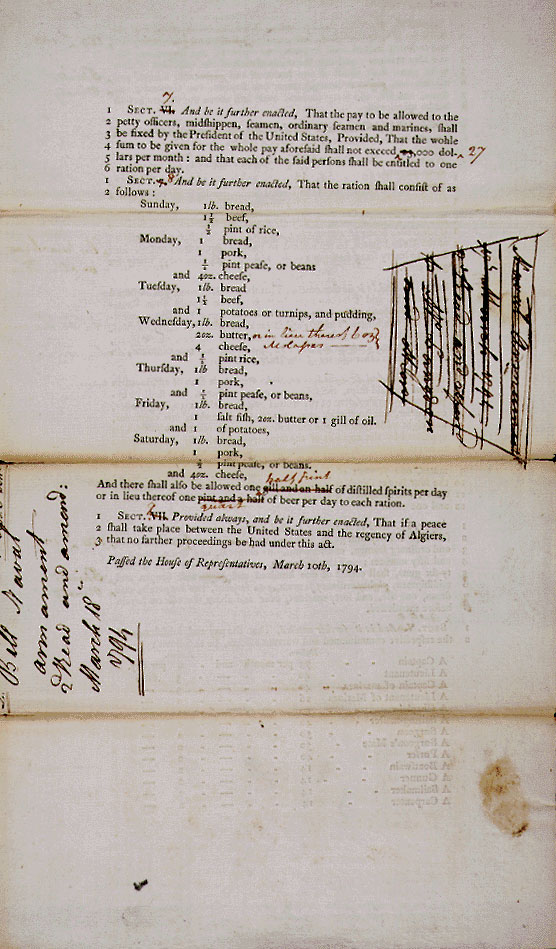 7.
1 SECT. VI. And be it further enacted, That the pay to be allowed to the
2 petty officers, midshippen, seamen, ordinary seamen and marines, shall
3 be fixed by the President of the United States, Provided, That the wohle
4 sum to be given for the whole pay aforesaid shall not exceed ,000 dol- 27
5 lars per month : and that each of the said persons shall be entitled to one
6 ration per day.
1 SECT. 8 And be it further enacted, That the ration shall consist of as
2 follows :
Sunday, 1lb. bread,
1½ beef,
½ pint of rice,
Monday, 1 bread,
1 pork,
½ pint pease, or beans
and 4oz. cheese,
Tuesday, 1lb. bread
1½ beef,
and 1 potatoes or turnips, and pudding,
Wednesday, 1lb. bread,
2oz. butter, or in lieu thereof 6 oz
Molasses
4 cheese,
and ½ pint rice,
Thursday, 1lb bread,
1 pork,
and ½ pint pease, or beans,
Friday, 1lb. bread,
1 salt fish, 2oz. butter or 1 gill of oil.
and 1 of potatoes,
Saturday, 1lb. bread,
1 pork,
½ pint pease, or beans.
and 4oz. cheese,
half pint
And there shall also be allowed one gill and an half of distilled spirits per day
or in lieu thereof one pint and a half of beer per day to each ration.
quart
1 SECT. VII. Provided always, and be it further enacted, That if a peace
2 shall take place between the United States and the regency of Algiers,
3 that no farther proceedings be had under this act.
Passed the House of Representatives, March 10th, 1794.
Bill Naval
armament
2 Read and amend:
March 18
1794